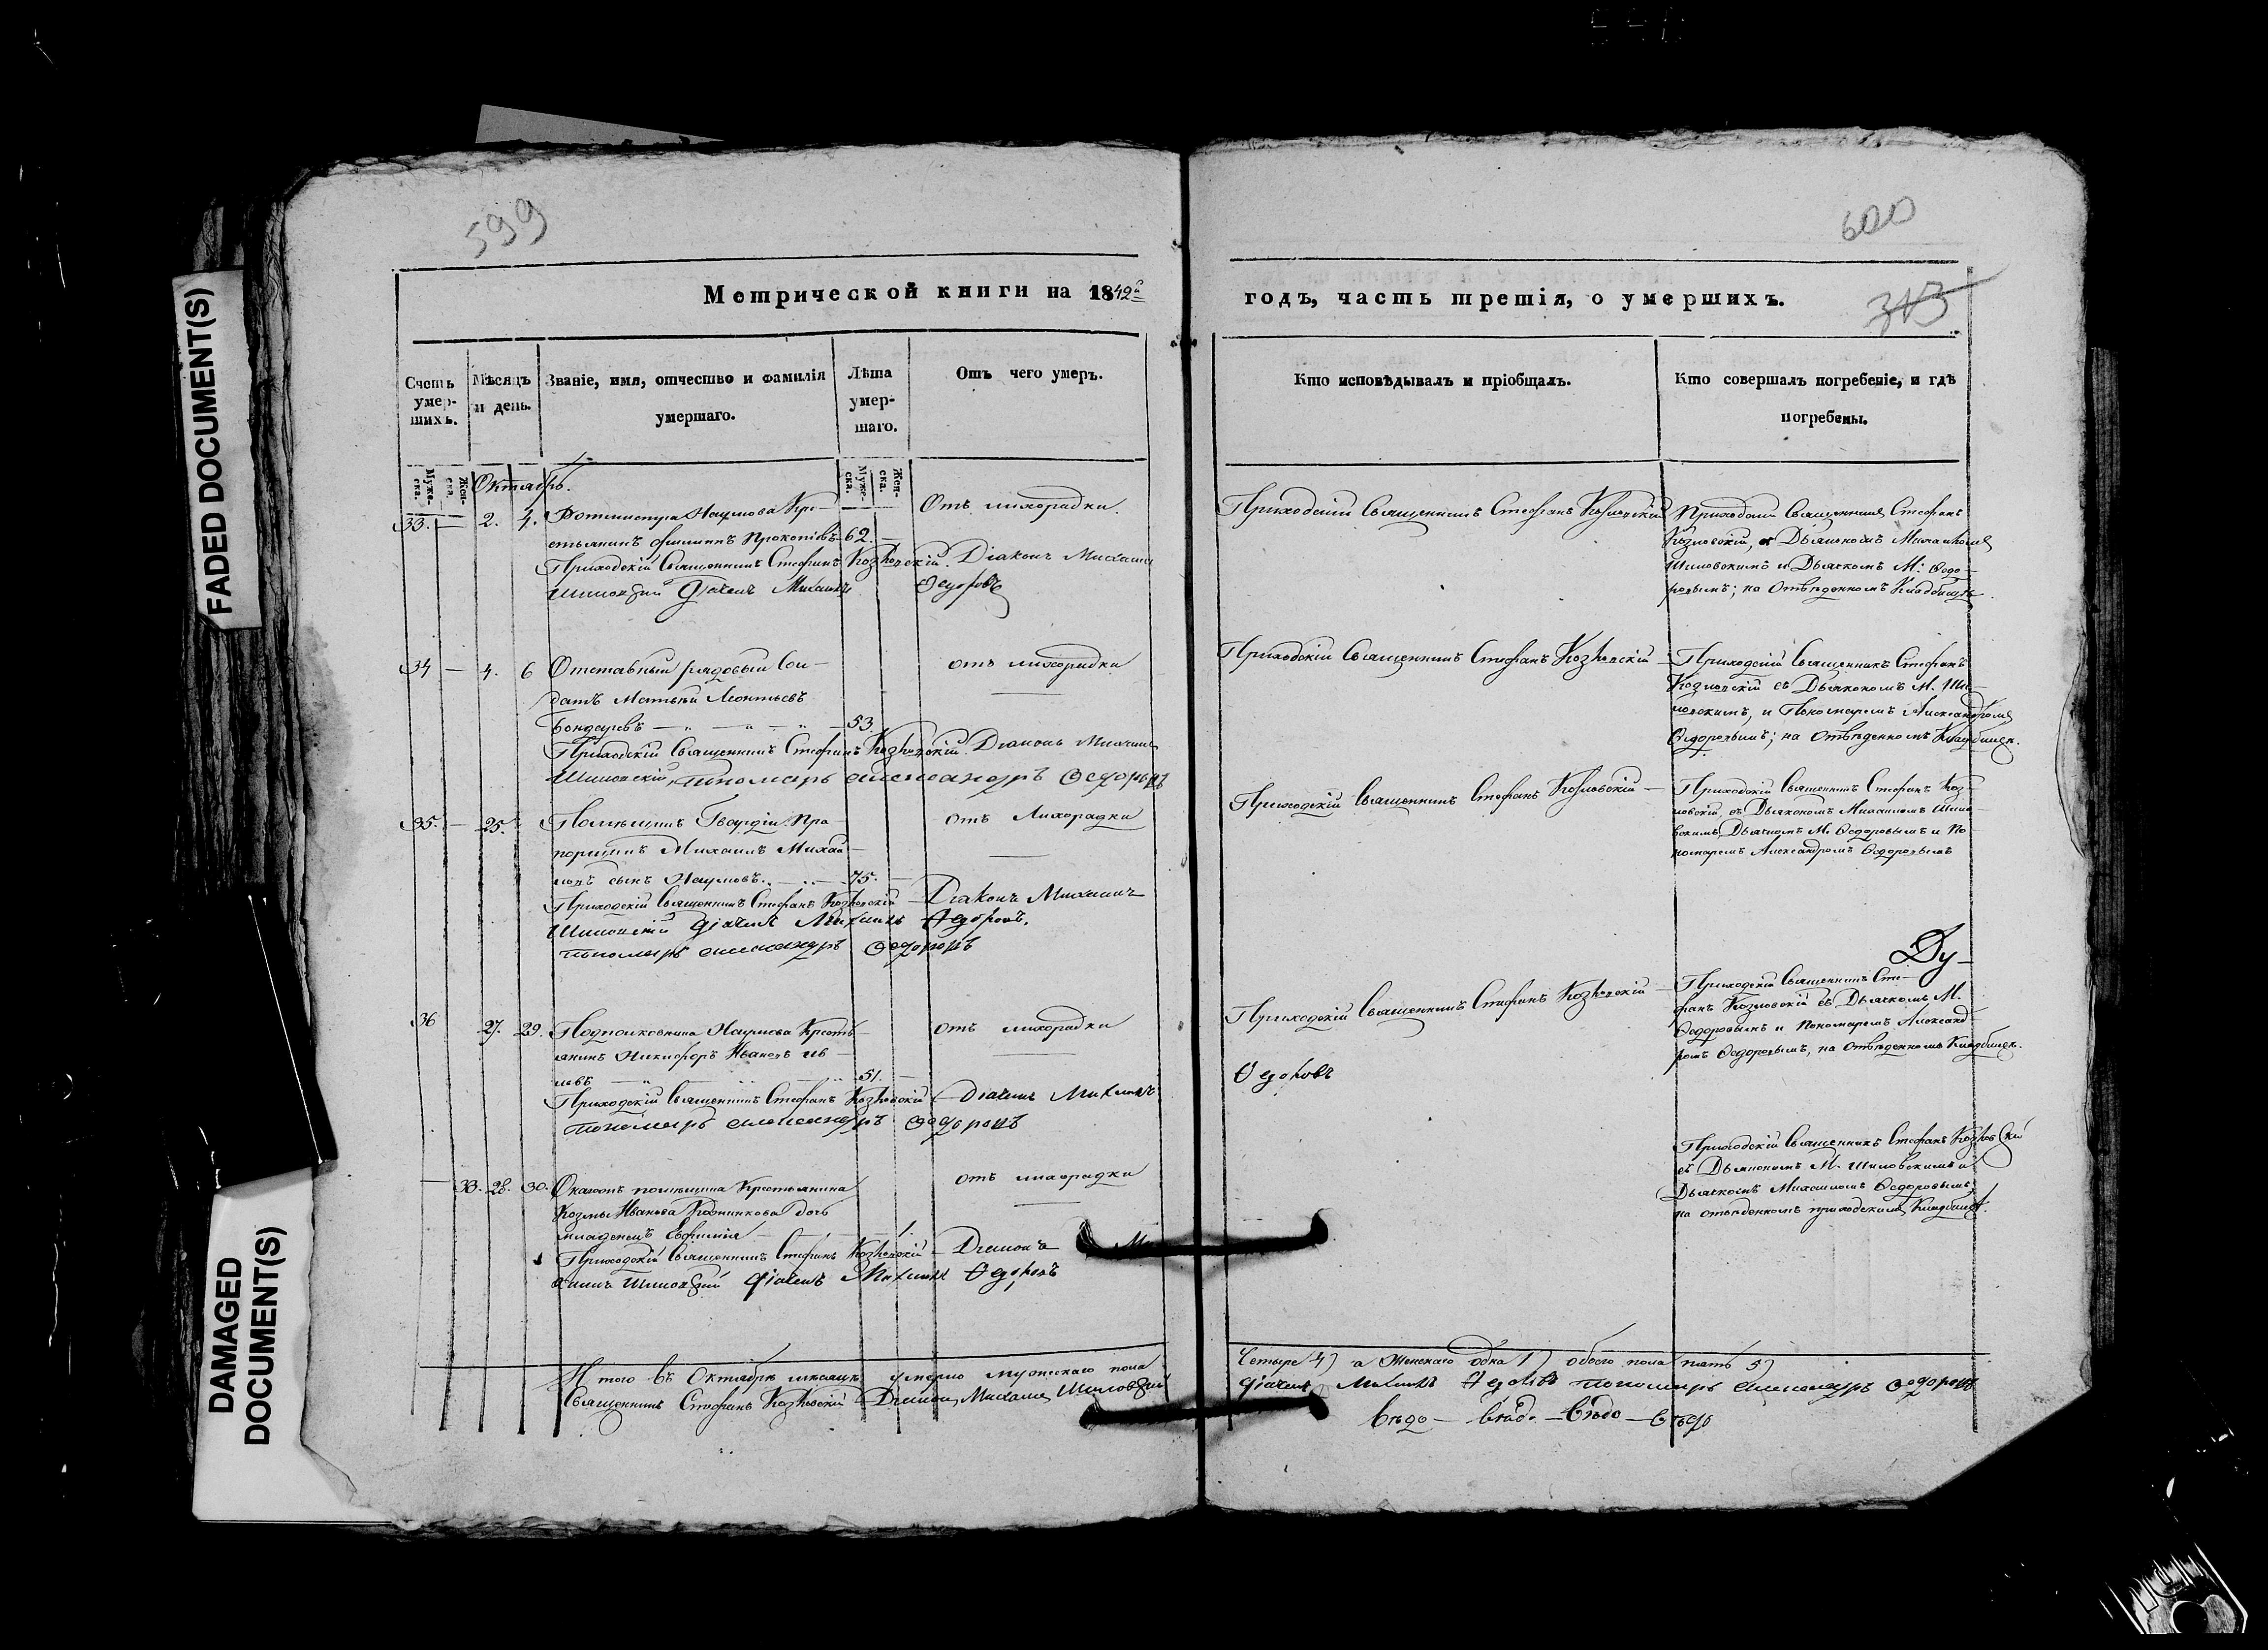 FADED DOCUMENT(S)
DAMAGED
DOCUMENT(S)
599
600
Метрической книги на 1842й
годъ, часть третія, о умершихъ.
313
Счетъ
умер-
шихъ.
Мѣсяцъ
и день.
Званіе, имя, отчество и фамилія
умершаго.
Лѣта
умер-
шаго.
Отъ чего умеръ.
Кто исповѣдывалъ и пріобщалъ.
Кто совершалъ погребеніе, и гдѣ
погребены.
Муже-
ска.
Жен-
ска.
Октябрь.
Муже-
ска.
Жен-
ска.
33. — 2. 4. Ротмистра Наумова Кре-
стьянинъ Филиппъ Прокопіевъ 62. —
Отъ лихорадки.
Приходскій Священникъ Стефанъ Козловскій. Діаконъ Михаилъ
Шиловскій Діачекъ Михаилъ Ѳедоровъ
Приходскій Священникъ Стефанъ Козловскій
Приходскій Священникъ Стефанъ
Козловскій, съ Дьякономъ Михаиломъ
Шиловскимъ и Дьячкомъ М: Ѳедо-
ровымъ; на Отведенномъ Кладбищѣ.
34 — 4. 6 Отставный рядовый Сол-
датъ Матвѣй Леонтьевъ
Бондаревъ — 53.
отъ лихорадки
Приходскій Священникъ Стефанъ Козловскій Діаконъ Михаилъ
Шиловскій, пономарь Александръ Ѳедоровъ
Приходскій Священникъ Стефанъ Козловскій —
Приходскій Священникъ Стефанъ
Козловскій съ Дьякономъ М. Ши-
ловскимъ, и Пономаремъ Александромъ
Ѳедоровымъ; на Отведенномъ Кладбищѣ.
35. — 25. Помѣщикъ Гвардіи Пра-
порщикъ Михаилъ Михай-
ловъ сынъ Наумовъ. — 75. —
отъ Лихорадки
Приходскій Священникъ Стефанъ Козловскій — Діаконъ Михаилъ
Шиловскій Діачекъ Михаилъ Ѳедоровъ,
пономарь Александръ Ѳедоровъ
Приходскій Священникъ Стефанъ Козловскій —
Приходскій Священникъ Стефанъ Коз-
ловскій, съ Дьякономъ Михаиломъ Шило-
вскимъ, Дьячкомъ М. Ѳедоровымъ и По-
номаремъ Александромъ Ѳедоровымъ
Ду-
36 27. 29. Подполковника Наумова Кресть-
янинъ Никифоръ Ивановъ
51. —
отъ лихорадки
Приходскій Священникъ Стефанъ Козловскій — Діачекъ Михаилъ
пономарь Александръ Ѳедоровъ
Приходскій Священникъ Стефанъ Козловскій —
Ѳедоровъ
Приходскій Священникъ Сте-
фанъ Козловскій съ Дьячкомъ М.
Ѳедоровымъ и Пономаремъ Александ-
ромъ Ѳедоровымъ, на Отведенномъ Кладбищѣ.
— 33. 28. 30. помѣщика Крестьянина
Козмы Иванова дочь
младенецъ Евфимія — 1.
отъ лихорадки
Приходскій Священникъ Стефанъ Козловскій — Діаконъ Ми-
хаилъ Шиловскій Діачекъ Михаилъ Ѳедоровъ
Приходскій Священникъ Стефанъ Козловскій
съ Дьякономъ М. Шиловскимъ и
Дьячкомъ Михаиломъ Ѳедоровымъ,
на отведенномъ приходскомъ Кладбищѣ.
Итого въ Октябрѣ мѣсяцѣ умерло мужескаго пола
Четыре 4) а Женскаго одна 1) обоего пола пять 5)
Священникъ Стефанъ Козловскій Діаконъ Михаилъ Шиловскій
Діачекъ Михаилъ Ѳедоровъ пономарь Александръ Ѳедоровъ